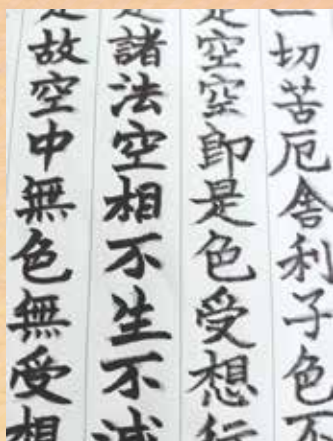 一切苦厄舎利子色不
是空空即是色受想行
是諸法空相不生不減
是故空中無色無受想